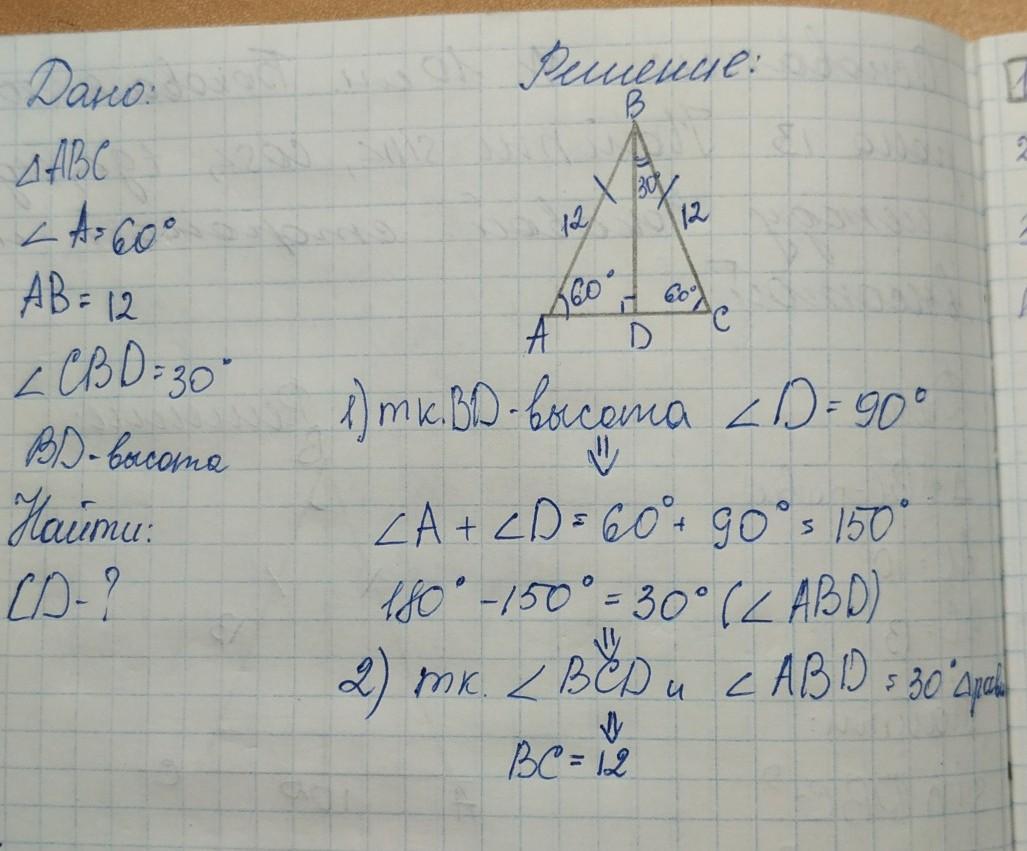 Дано:
△ABC
∠A=60°
AB=12
∠CBD=30°
BD-высота
Найти:
CD-?
Решение:
B
30°
12
12
60°
60°
A
D
C
1) тк.BD-высота ∠D=90°
⇓
∠A+∠D=60°+90°=150°
180°-150°=30°(∠ABD)
⇓
2) тк. ∠BCD и ∠ABD=30° △равн
⇓
BC=12